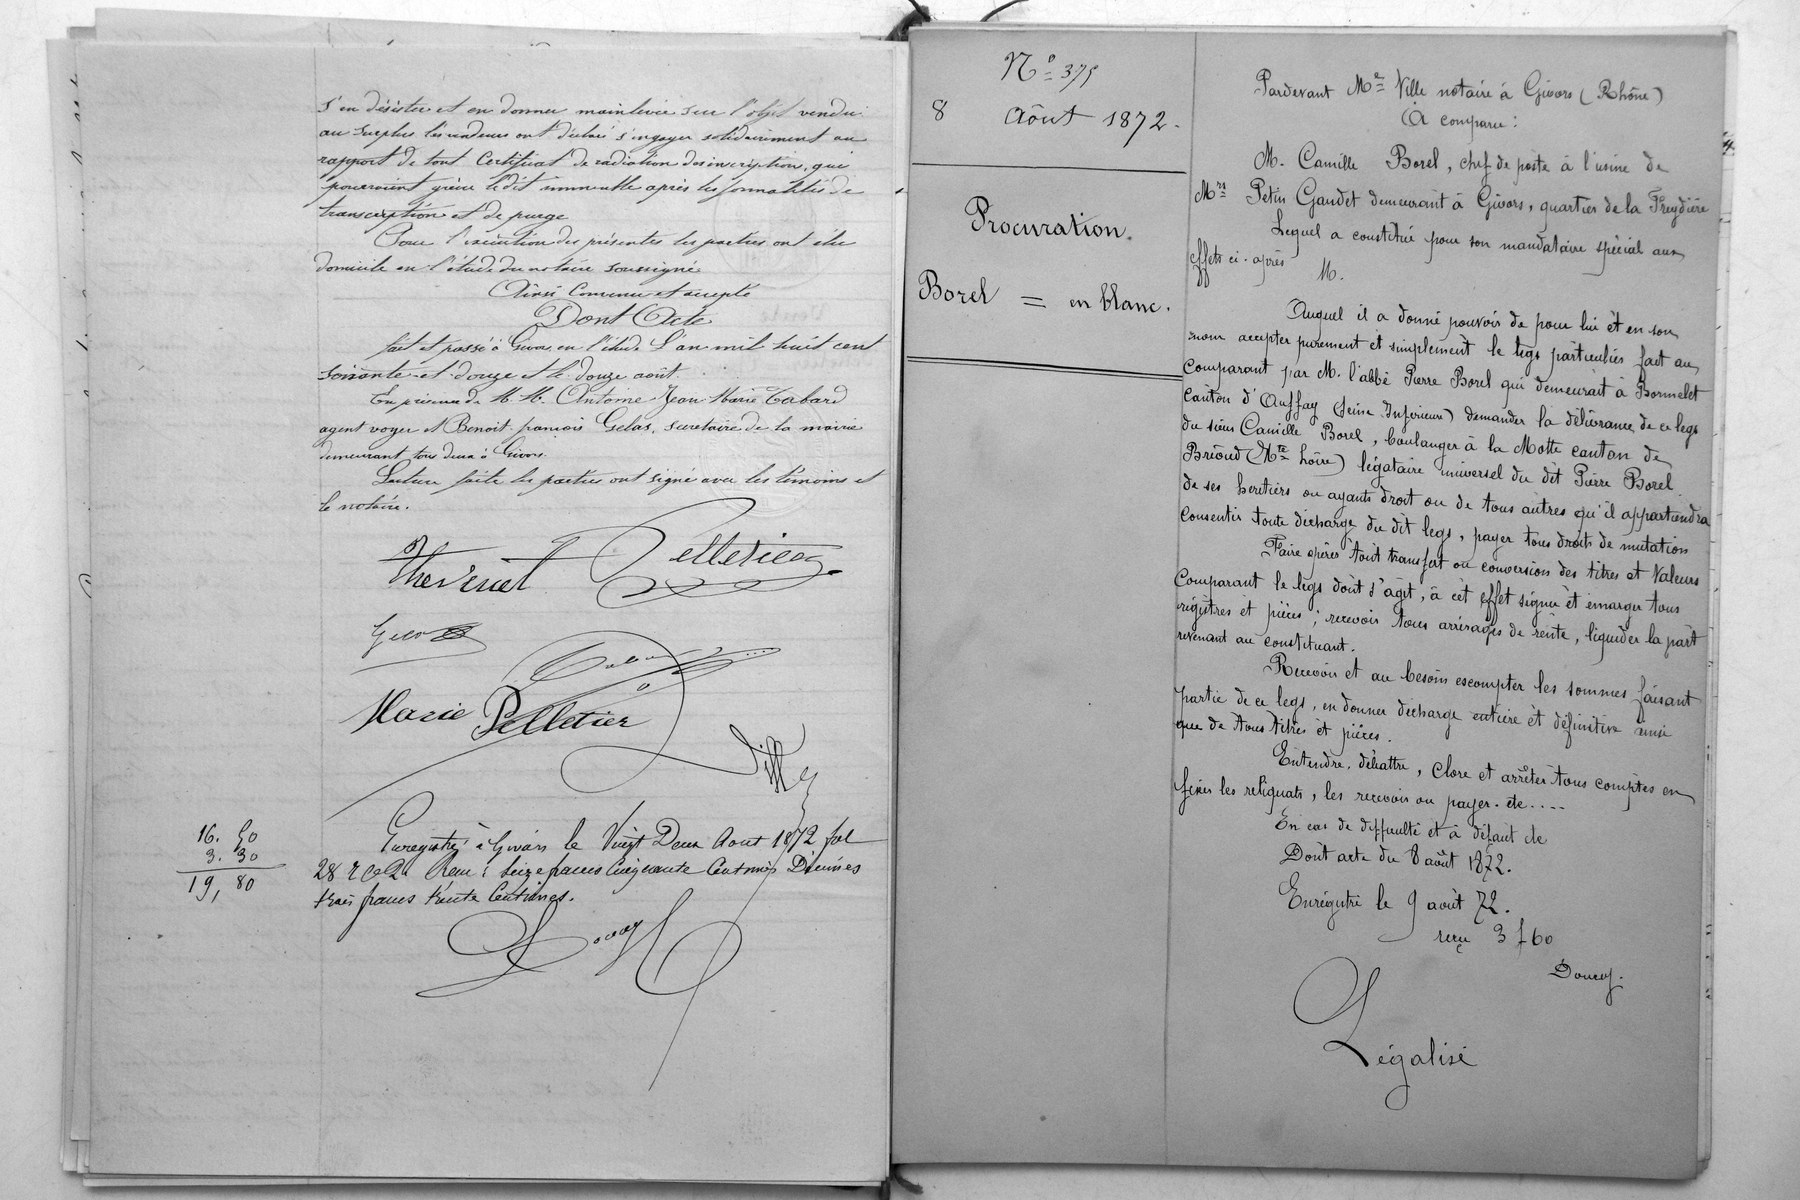 s'en désister et en donner mainlevée sur l'objet vendu
au surplus les vendeurs ont déclaré s'engager solidairement au
rapport de tout Certificat de radiation des inscription, qui
pourraient grever le dit immeuble après les formalités de
transcription et de purge
Pour l'exécution des présentes les parties ont élu
domicile en l'étude du notaire soussigné
Ainsi Convenu et accepté
Dont Acte
fait et passé à Givors en l'étude L'an mil huit cent
soixante-et-douze et le douze août
En présence de M.M. Antoine Jean Marie Tabard
agent voyer et Benoit françois Gelas, secrétaire de la mairie
demeurant tous deux à Givors
Lecture faite les parties ont signé avec les témoins et
le notaire.
Thevenet Pelletier
Gelas
Tabard
Marie Pelletier
Ville
16. 50
3. 30
19, 80
Enregistré à Givors le Vingt Deux Aout 1872 fol
28 r c 2 Reçu : seize francs Cinquante Centimes Décimes
trois francs trente Centimes.
Doucy
N° 375
8 Août 1872.
Procuration.
Borel = en blanc.
Pardevant Me Ville notaire à Givors (Rhône)
A comparu :
M. Camille Borel, chef de poste à l'usine de
Mrs Petin Gaudet demeurant à Givors, quartier de la Freydière
Lequel a constitué pour son mandataire spécial aux
effets ci-après
M.
Auquel il a donné pouvoir de pour lui et en son
nom accepter purement et simplement le legs particulier fait au
Comparant par M. l'abbé Pierre Borel qui demeurait à Bormelet
Canton d'Auffay (Seine Inférieure) demander la délivrance de ce legs
du sieur Camille Borel, boulanger à la Motte canton de
Brioud (Hte Loire) légataire universel du dit Pierre Borel
de ses heretiers ou ayants droit ou de tous autres qu'il appartiendra
Consentir toute décharge du dit legs, payer tous droits de mutation
Faire opérer tout transfert ou conversion des titres et Valeurs
Comparant le legs dont s'agit, à cet effet signer et emarger tous
régistres et pièces ; recevoir tous arrérages de rente, liquider la part
revenant au constituant.
Recevoir et au besoin escompter les sommes faisant
partie de ce legs, en donner décharge entière et définitive ainsi
que de tous titres et pièces.
Entendre, débattre, Clore et arrêter tous comptes en
fixer les reliquats, les recevoir ou payer. etc....
En cas de difficulté et à défaut de
Dont acte du 8 août 1872.
Enregistré le 9 août 72.
reçu 3 f 60
Doucy.
Légalisé